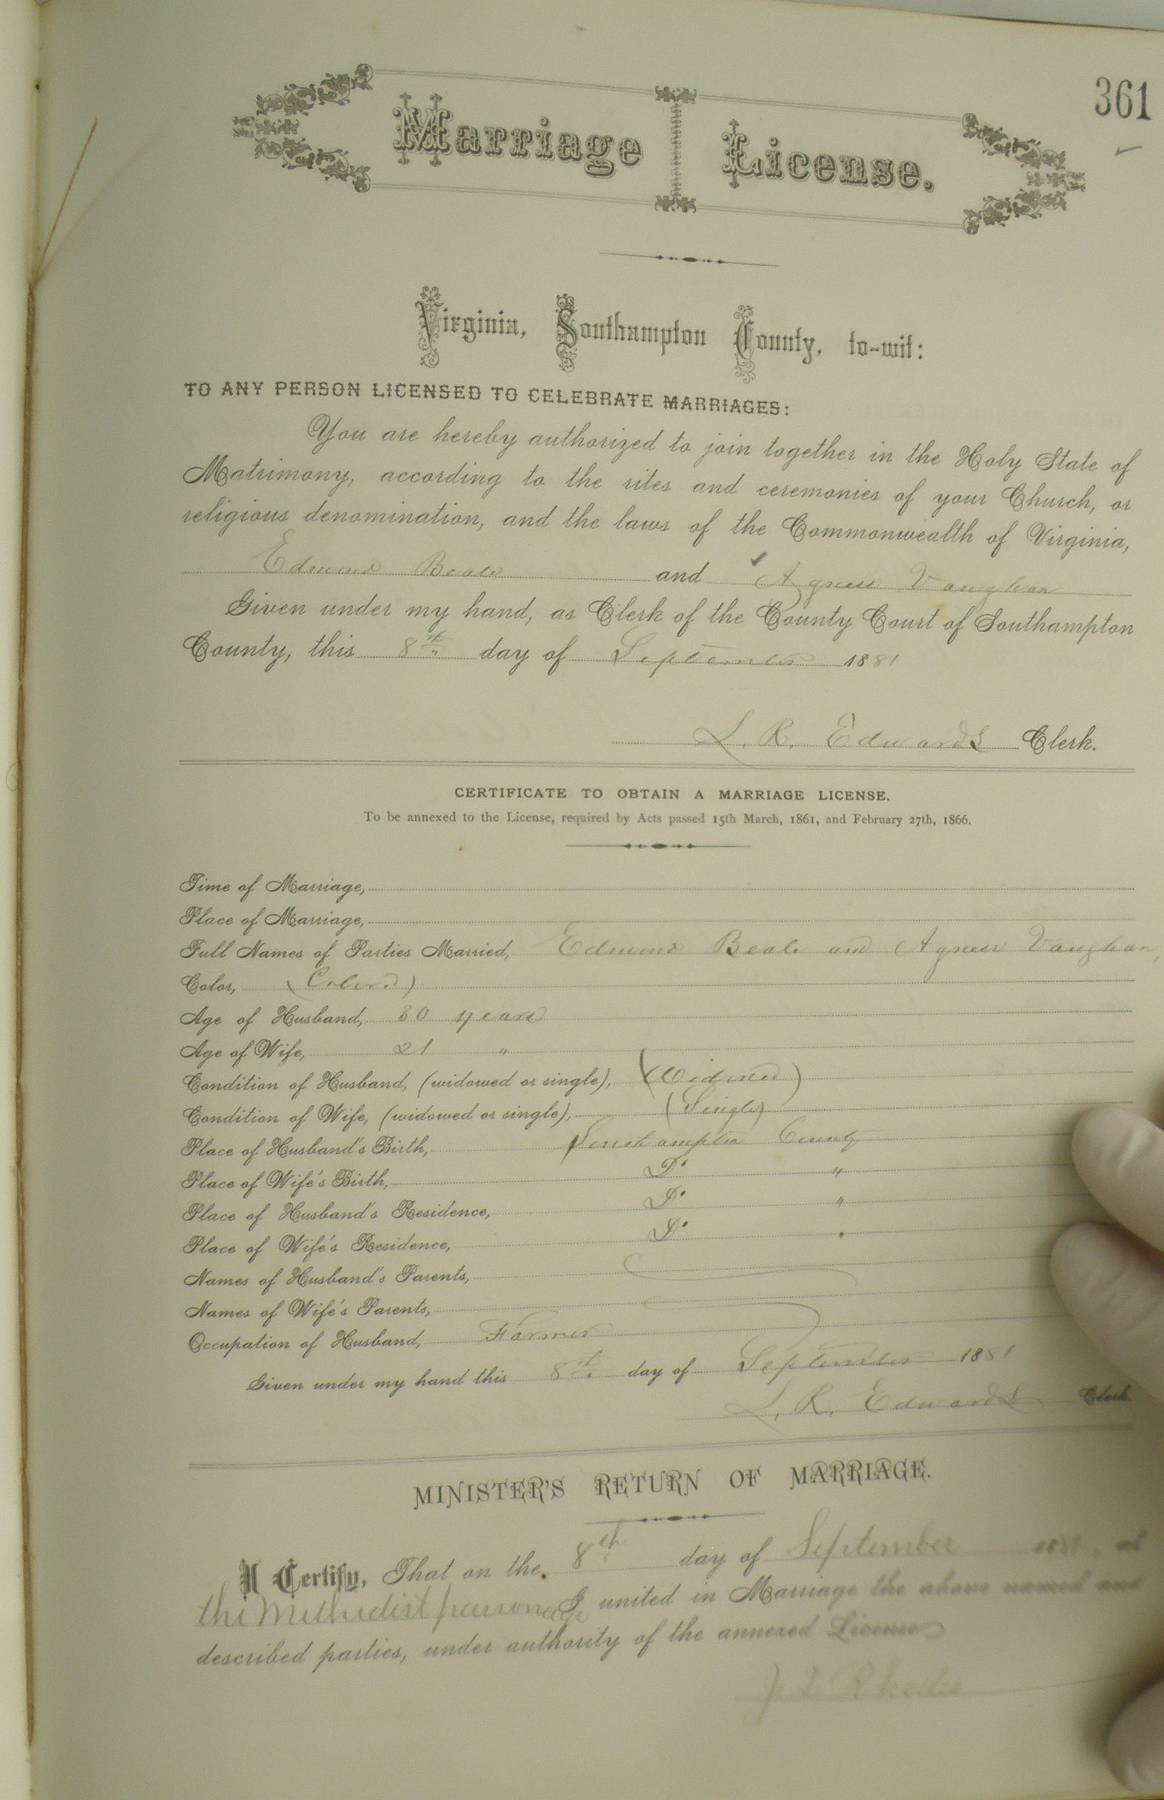 361
Marriage License.
Virginia, Southampton County, to-wit:
TO ANY PERSON LICENSED TO CELEBRATE MARRIAGES:
You are hereby authorized to join together in the Holy State of
Matrimony, according to the rites and ceremonies of your Church, or
religious denomination, and the laws of the Commonwealth of Virginia,
Edmund Beale and Agness Vaughan
Given under my hand, as Clerk of the County Court of Southampton
County, this 8th day of September 1881
L. R. Edwards Clerk.
CERTIFICATE TO OBTAIN A MARRIAGE LICENSE.
To be annexed to the License, required by Acts passed 15th March, 1861, and February 27th, 1866.
Time of Marriage,
Place of Marriage,
Full Names of Parties Married, Edmund Beale and Agness Vaughan,
Color, (Colored)
Age of Husband, 30 years
Age of Wife, 21 "
Condition of Husband, (widowed or single), (Widowed)
Condition of Wife, (widowed or single), (Single)
Place of Husband's Birth, Southampton County
Place of Wife's Birth, Do "
Place of Husband's Residence, Do "
Place of Wife's Residence, Do "
Names of Husband's Parents,
Names of Wife's Parents,
Occupation of Husband, Farmer
Given under my hand this 8th day of September 1881
L. R. Edwards Clerk
MINISTER'S RETURN OF MARRIAGE.
I Certify, That on the 8th day of September 1881, at
the Methodist parsonage I united in Marriage the above named and
described parties, under authority of the annexed License
Rhodes